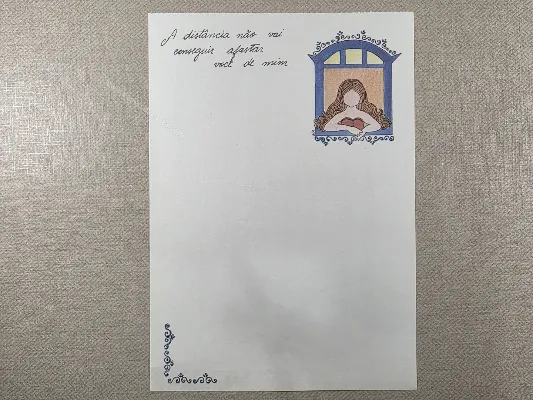 A distância não vai
conseguir afastar
você de mim